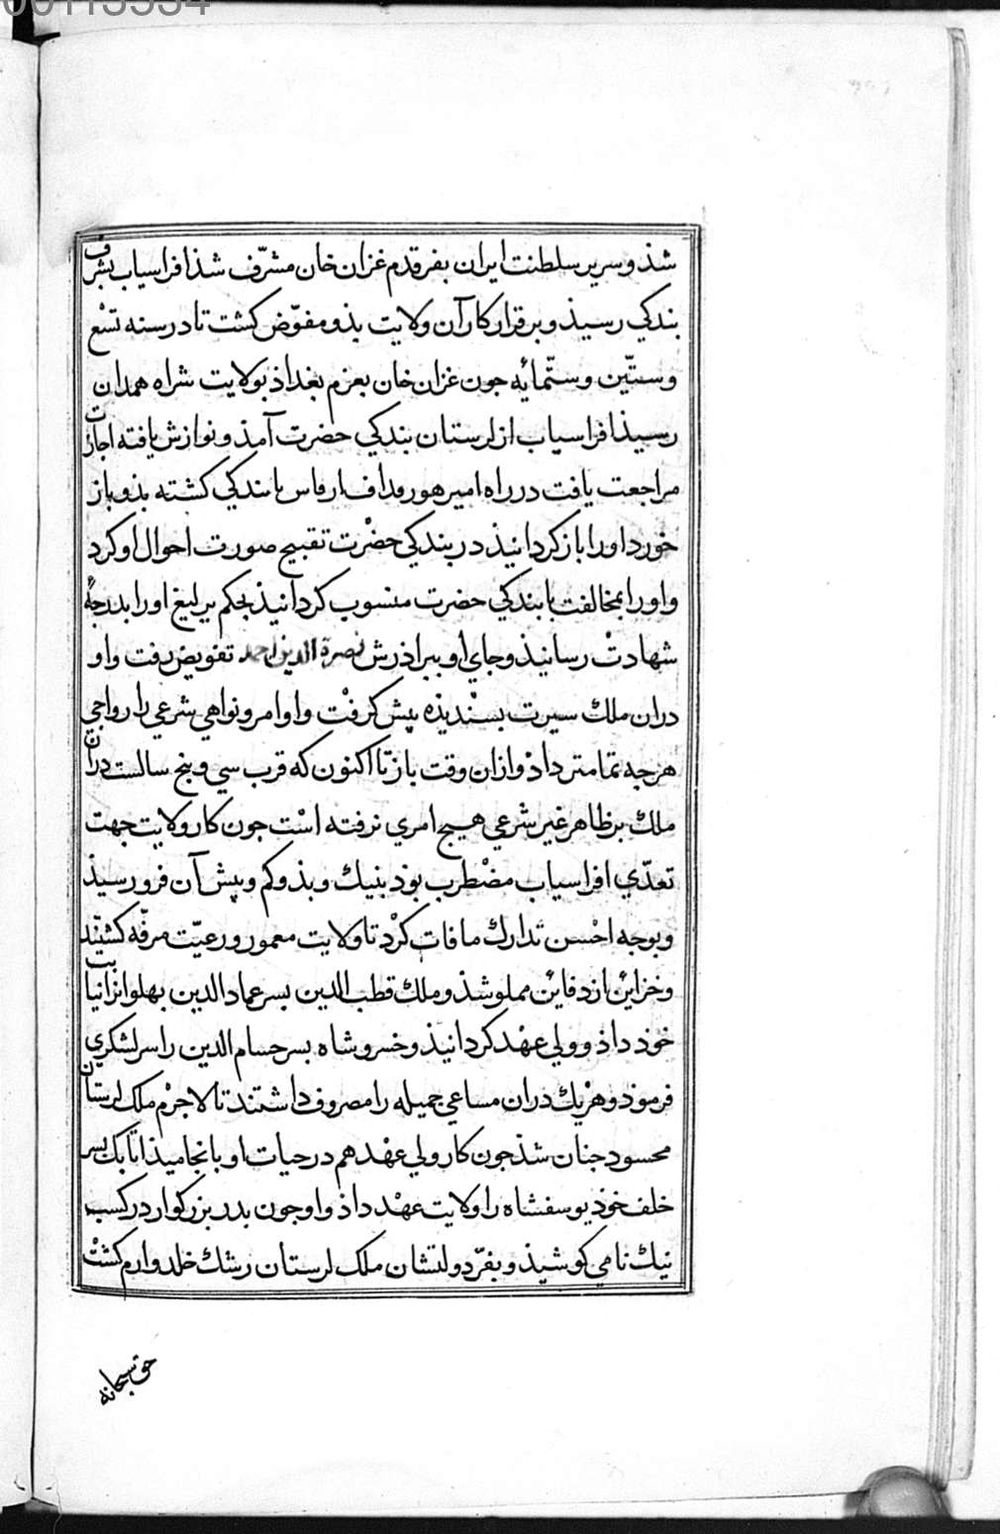 00113534
شذ و سریر سلطنت ایران بفر قدم غزان خان مشرّف شذ افراسیاب بشرف
بندکي رسیذ و بر قرار کار آن ولایت بذو مفوّض کشت تا در سنه تسْع
وستّین وستّمائه جون غزان خان بعزم بغداذ بولایت شراه همدان
رسیذ افراسیاب از لرستان بندکي حضرت آمذ و نوازش یافته اجازت
مراجعت یافت در راه امیر هورقداق از فارس با بندکي کشته بذو باز
خورد اورا باز کردانیذ در بندکي حضْرت تقبیح صورت احوال او کرد
واورا بمخالفت با بندکي حضرت منسوب کردانیذ بحکم یرلیغ اورا بدرجهٔ
شهادتْ رسانیذ و جاي او ببراذرش نصرة الدین احمد تفویض رفت واو
دران ملك سیرت بسندیذه پیش کرفت واوامر و نواهي شرعي را رواجي
هرجه تمامتر داذ وازان وقت باز تا اکنون که قرب سي و بنج سالست دران
ملك بر ظاهر غیر شرعي هیج امري نرفته اسْت جون کار ولایت جهت
تعدّي افراسیاب مضْطرب بوذ بنیك و بذ و کم و بیش آن فرو رسیذ
و بوجه احْسن تدارك ما فات کرْد تا ولایت معمور و رعیّت مرفّه کشتند
و خزاین از دفاین مملو شذ و ملك قطب الدین بسر عماد الدین بهلوانرا نیابت
خوذ داذ و ولي عهْد کردانیذ و خسرو شاه بسر حسام الدین را سر لشکري
فرموذ و هر یك دران مساعي جمیله را مصروف داشتند تا لاجرْم ملك لرستان
محسود جنان شذ جون کار ولي عهْد هم در حیات او بانجامیذ اتابك بسر
خلف خوذ یوسفشاه را ولایت عهْد داذ واو جون بدر بزرکوار در کسب
نیك نامي کوشیذ و بفرّ دولتشان ملك لرستان رشك خلد و ارم کشتْ
حق سبحانه